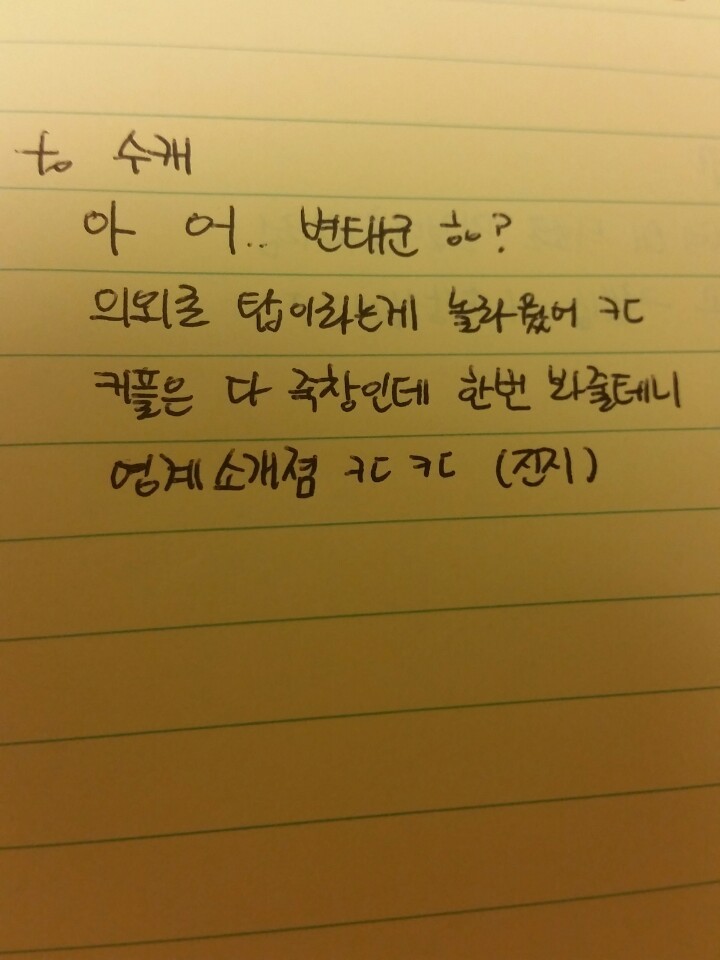 to 수개
아 어.. 변태군 ㅎㅇ?
의외로 탑이라는게 놀라웠어 ㅋㄷ
커플은 다 죽창인데 한번 봐줄테니
영계소개점 ㅋㄷㅋㄷ (진지)